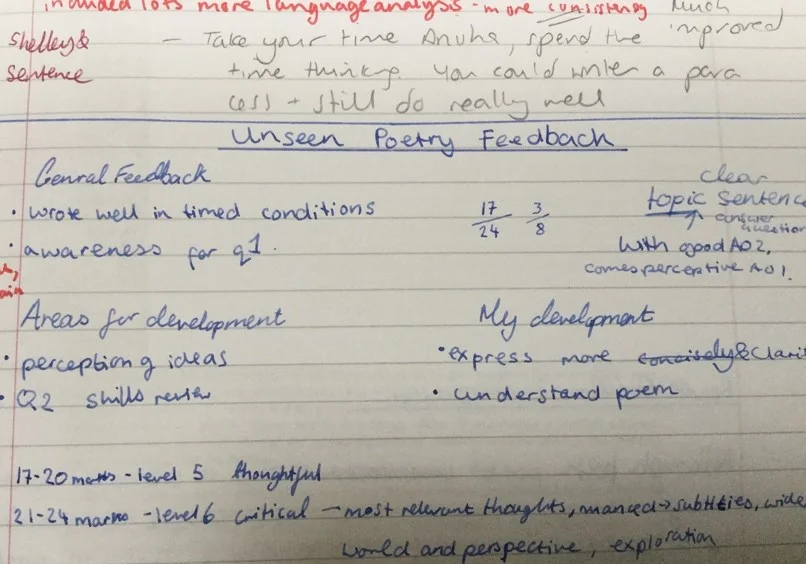 included lots more language analysis - more consistency much
Shelley & - Take your time Anuha, spend the improved
sentence time thinking. You could write a para
less + still do really well
Unseen Poetry Feedback
Genral Feedback
clear
• wrote well in timed conditions 17/24 3/8 topic sentence
answer question
• awareness for q1. with good AO2,
comes perceptive AO1.
Areas for development My development
• perception of ideas • express more concisely & Clari
• Q2 skills review • understand poem
17-20 marks - level 5 thoughtful
21-24 marks - level 6 critical - most relevant thoughts, nuanced → subtlties, wide
world and perspective, exploration